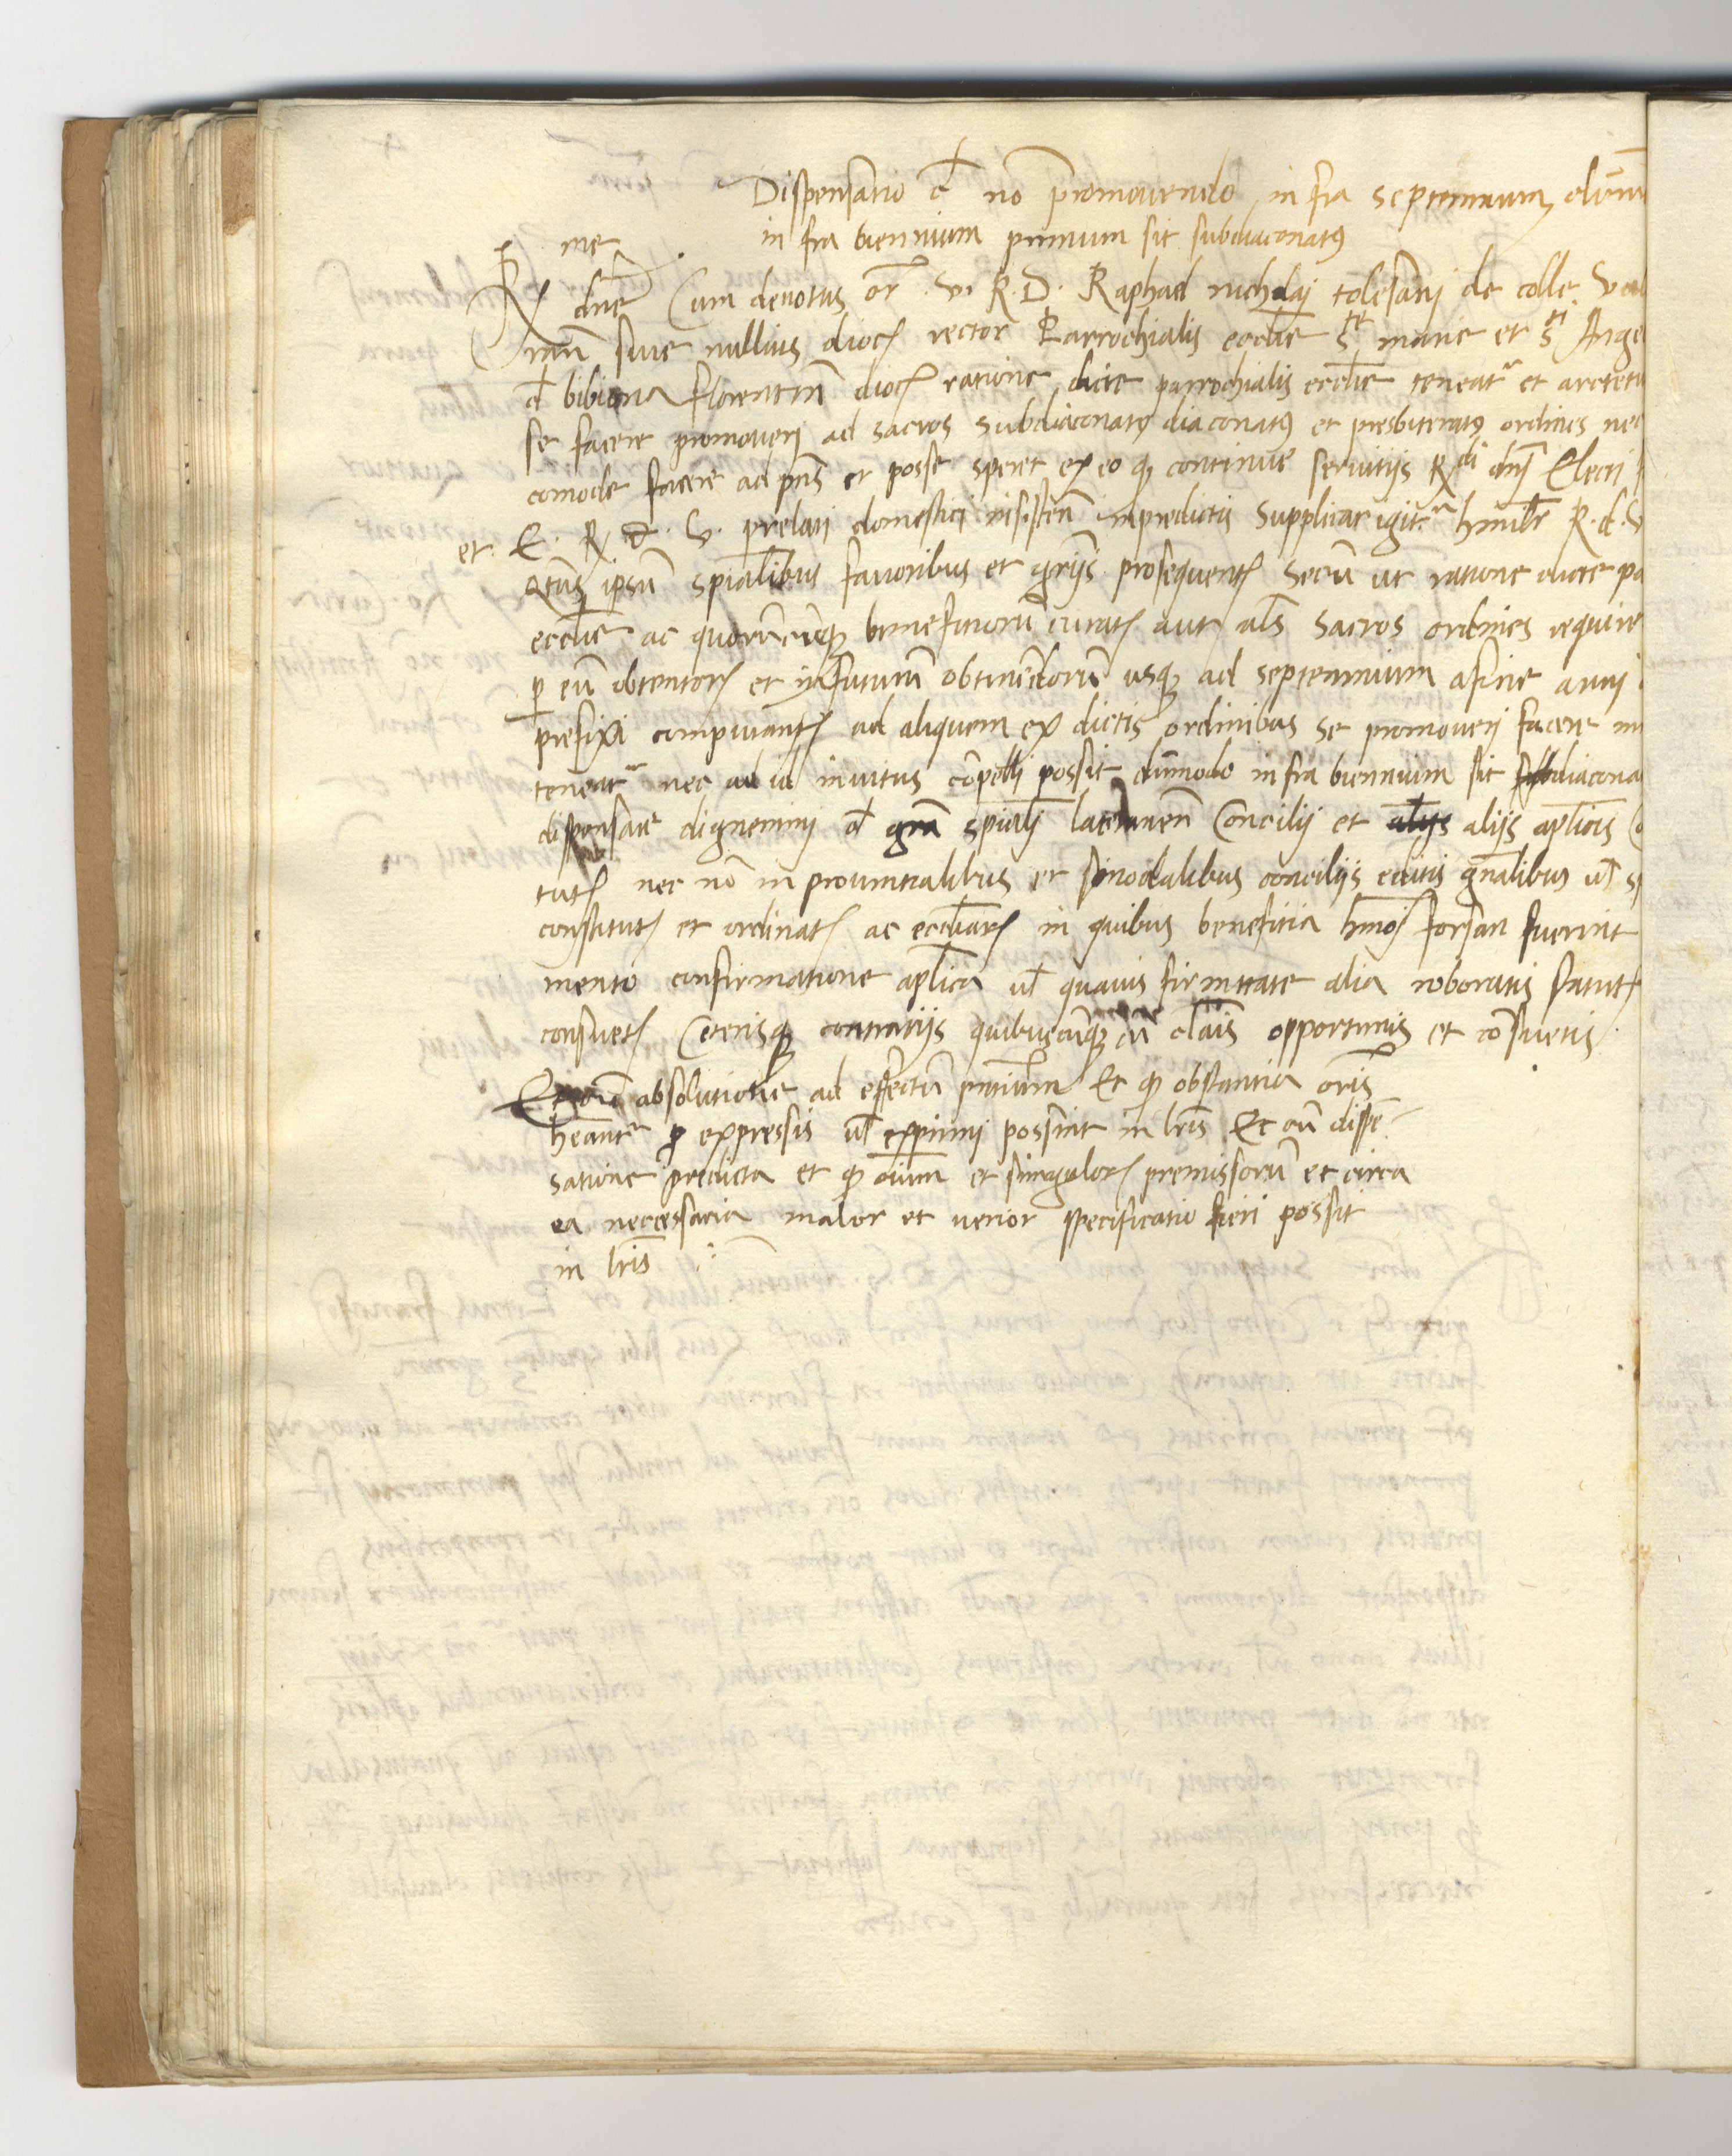 Dispensatio d no promovendo infra septennium dum
infra biennium primum sit subdiaconatus
R me dne Cum devotus or v. R. D. Raphael nicholaj tolesanj de colle
ran sive nullius dioc rector Parrochialis ecclie ste marie et sti Ange
d bibiona florentin dioc ratione dicte parrochialis ecclie teneatr et arctetu
se facere promoverj ad sacros subdiaconatus diaconatus et presbiteratus ordines nec
comode facere ad pns et posse speret ex eo q continue servitijs R di dnj Electi
et E. R. D. V. prelati domestici insisten inpredictis Supplicat igitr humilr R. d. v
Qtus ipsum spialibus favoribus et gratijs prosequentes Secu ut ratione dicte pa
ecclie ac quorucuqz beneficioru curat aut als sacros ordines require
p eu obtentor et in futuru obtinendoru usqz ad septennium a fine anni
prefixi computant ad aliquem ex dictis ordinibus se promoverj facere mi
teneatr nec ad id invitus copelli possit dummodo infra biennium sit subdiacona
dispensare dignemini d gra spiali lateranen Concilij et aliis aplicis
tut nec no in provintialibus et sinodalibus concilijs editis gnalibus ul s
constitut et ordinat ac ecclear in quibus benefitia hmoj forsan fuerint
mento confirmatione aplica ul quavis firmitate alia roboratis statut
consuet Ceterisqz contrarijs quibuscuqz cu clais opportunis et cosuetis
Et cu absolutione ad effectu presentium Et q obstantia oris
heantr p expressis ul exprimi possint in lris Et cu dispe
satione predicta et q oium et singulor premissoru et circa
ea neccessaria maior et verior specificatio fieri possit
in lris